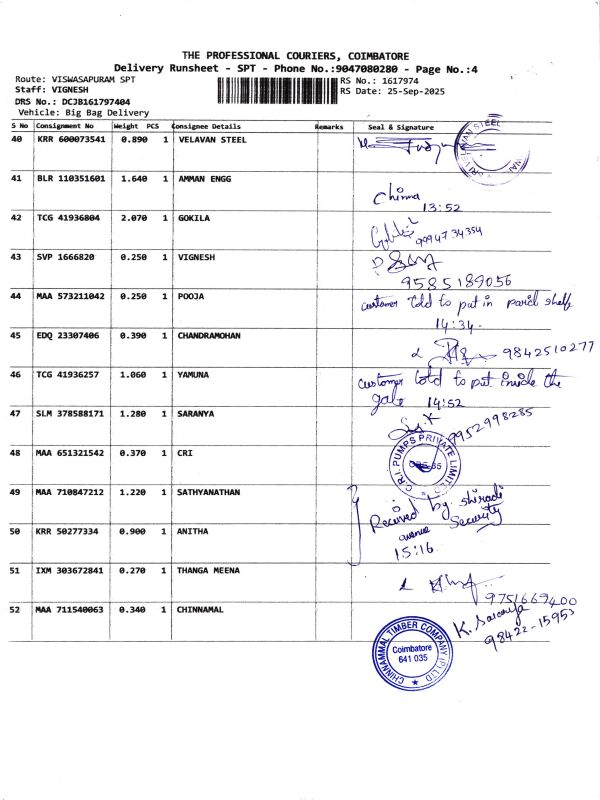 THE PROFESSIONAL COURIERS, COIMBATORE
Delivery Runsheet - SPT - Phone No.:9047080280 - Page No.:4
Route: VISWASAPURAM SPT
Staff: VIGNESH
DRS No.: DCJB161797404
Vehicle: Big Bag Delivery
RS No.: 1617974
RS Date: 25-Sep-2025
S No Consignment No Weight PCS Consignee Details Remarks Seal & Signature
40 KRR 600073541 0.890 1 VELAVAN STEEL
SRI VELAVAN STEEL
41 BLR 110351601 1.640 1 AMMAN ENGG
Chinna
13:52
42 TCG 41936804 2.070 1 GOKILA
9994734354
43 SVP 1666820 0.250 1 VIGNESH
9585189056
44 MAA 573211042 0.250 1 POOJA
customer told to put in parcel shelf
14:34.
45 EDQ 23307406 0.390 1 CHANDRAMOHAN
9842510277
46 TCG 41936257 1.060 1 YAMUNA
customer told to put inside the
gate 14:52
47 SLM 378588171 1.280 1 SARANYA
9952998285
48 MAA 651321542 0.370 1 CRI
C.R.I. PUMPS PRIVATE LIMITED
49 MAA 710847212 1.220 1 SATHYANATHAN
Received by shiradi
avenue Security
15:16
50 KRR 50277334 0.900 1 ANITHA
51 IXM 303672841 0.270 1 THANGA MEENA
9751669400
52 MAA 711540063 0.340 1 CHINNAMAL
K. Saranya
98422-15953
CHINNAMMAL TIMBER COMPANY (P) LTD
Coimbatore
641 035